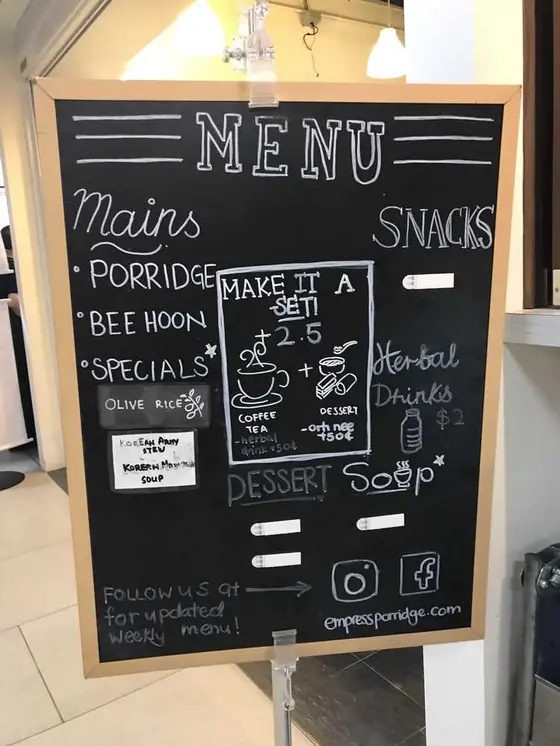 MENU
Mains
• PORRIDGE
• BEE HOON
• SPECIALS
OLIVE RICE
KOREAN ARMY
STEW
KOREAN
SOUP
MAKE IT A
SET!
+2.5
+
COFFEE
TEA
-herbal
drink +50¢
DESSERT
-orh nee
+50¢
SNACKS
Herbal
Drinks
$2
DESSERT
Soup
FOLLOW US at
for updated
weekly menu!
empressporridge.com